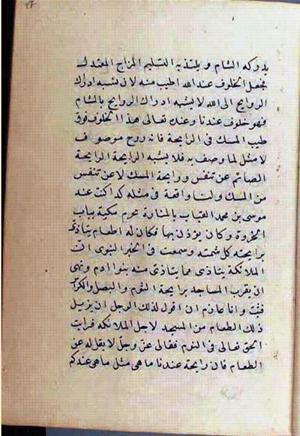 يدركه الشام و يلتذ به السليم المزاج المعتدل
فجعل الخلوف عند الله اطيب منه لان نسبة ادراك
الروايح الى الله لا يشبه ادراك الروايح بالمشام
فهو خلوف عندنا وعنده تعالى هذا الخلوف فوق
طيب المسك في الرايحة فانه روح موصوف
لا مثل لما وصف به فلا يشبه الرايحة الرايحة فان رايحة
الصائم عن تنفس ورايحة المسك لا عن تنفس
من المسك ولنا واقعة في مثله كنت عند
موسى بن محمد القباب بالمنارة بحرم مكة بباب
الحزورة وكان يؤذن بها فكان له طعام يتاذى
برايحته كل من شمه وسمعت في الخبر النبوي ان
الملائكة يتاذى مما يتاذى منه بنوا ادم ونهى
ان يقرب المساجد برايحة الثوم والبصل والكراث
فبت وانا عازم ان اقول لذلك الرجل ان يزيل
ذلك الطعام من المسجد لاجل الملائكة فرايت
الحق تعالى في النوم فقال لي عز وجل لا تقل له عن
الطعام فان رايحته عندنا ما هي مثل ما هي عندكم